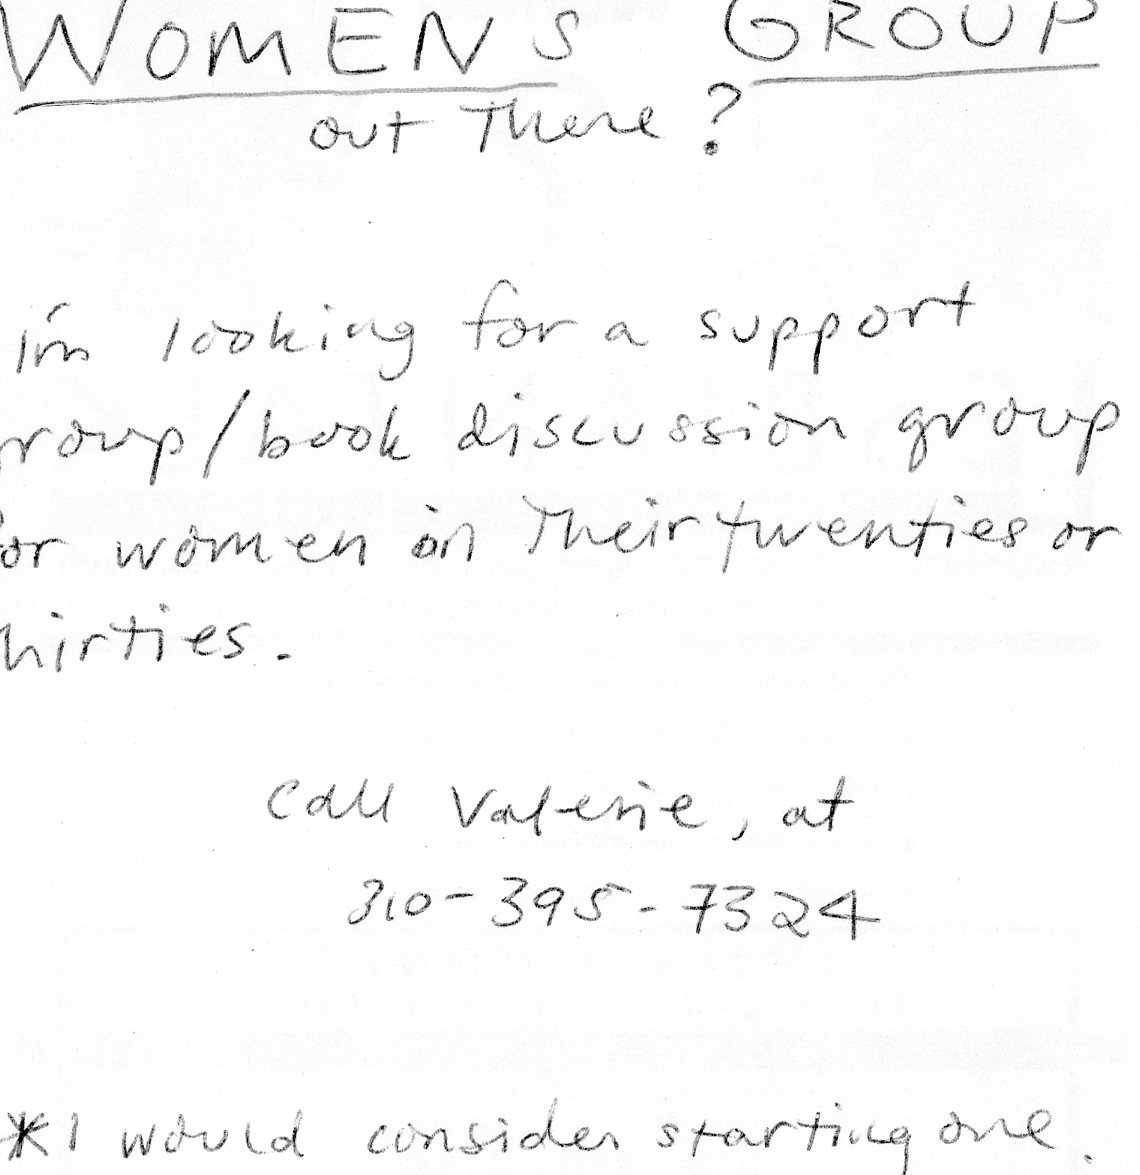 WOMENS GROUP
out There?
I'm looking for a support
group/book discussion group
for women in Their twenties or
thirties.
Call Valerie, at
310-395-7324
*I would consider starting one.